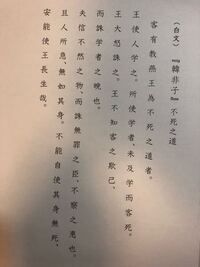 (白文) 『韓非子』不死之道
客有教燕王為不死之道者。
王使人学之。所使学者、未及学而客死。
王大怒誅之。王不知客之欺己、
而誅学者之晚也。
夫信不然之物、而誅無罪之臣、不察之患也。
且人所急、無如其身。不能自使其身無死、
安能使王長生哉。